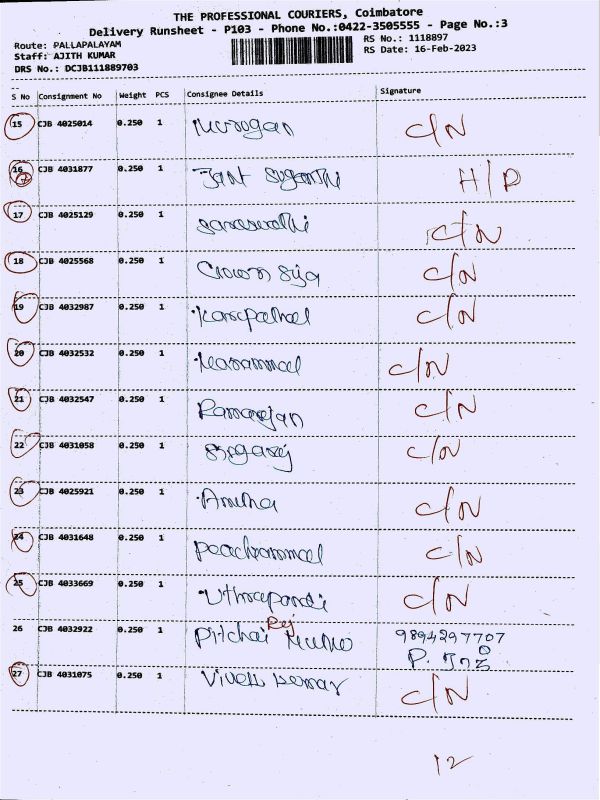 THE PROFESSIONAL COURIERS, Coimbatore
Delivery Runsheet - P103 - Phone No.:0422-3505555 - Page No.:3
Route: PALLAPALAYAM RS No.: 1118897
Staff: AJITH KUMAR RS Date: 16-Feb-2023
DRS No.: DCJB111889703
S No Consignment No Weight PCS Consignee Details Signature
15 CJB 4025014 0.250 1 Murogan C/N
16 CJB 4031877 0.250 1 H/P
17 CJB 4025129 0.250 1 C/N
18 CJB 4025568 0.250 1 Crown C/N
19 CJB 4032987 0.250 1 C/N
20 CJB 4032532 0.250 1 C/N
21 CJB 4032547 0.250 1 C/N
22 CJB 4031058 0.250 1 C/N
23 CJB 4025921 0.250 1 C/N
24 CJB 4031648 0.250 1 C/N
25 CJB 4033669 0.250 1 C/N
26 CJB 4032922 0.250 1 Pitchai 9894297707
P.
27 CJB 4031075 0.250 1 Vivek C/N
12